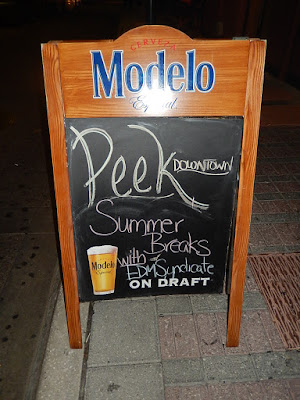 CERVEZA
Modelo
Especial
Peek
DOWNTOWN
Summer
Breaks
with
EDM Syndicate
Modelo
Especial
ON DRAFT